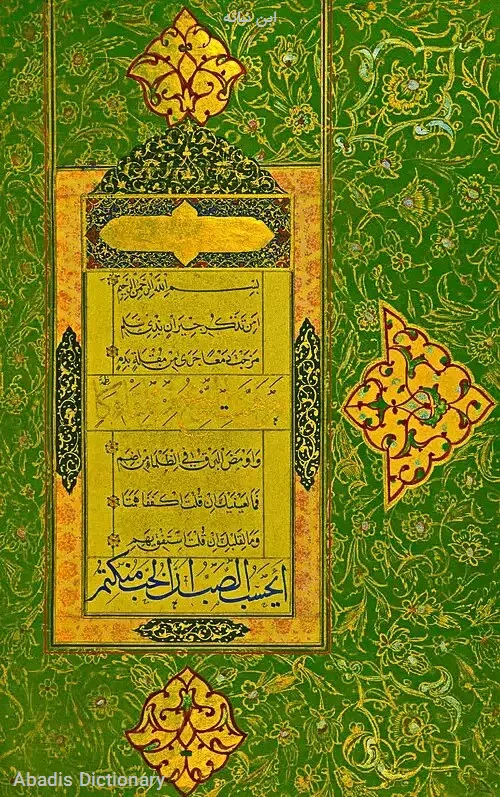 ابن نباته
بِسْمِ اللهِ الرَّحْمٰنِ الرَّحِيمِ
اَمِنْ تَذَكُّرِ جِيرَانٍ بِذِي سَلَمٍ
مَزَجْتَ دَمْعًا جَرٰى مِنْ مُقْلَةٍ بِدَمِ
وَاَوْمَضَ الْبَرْقُ فِي الظَّلْمَاءِ مِنْ اِضَمِ
فَمَا لِعَيْنَيْكَ اِنْ قُلْتَ اكْفُفَا هَمَتَا
وَمَا لِقَلْبِكَ اِنْ قُلْتَ اسْتَفِقْ يَهِمِ
ايحسب الصب ان الحب منكتم
Abadis Dictionary